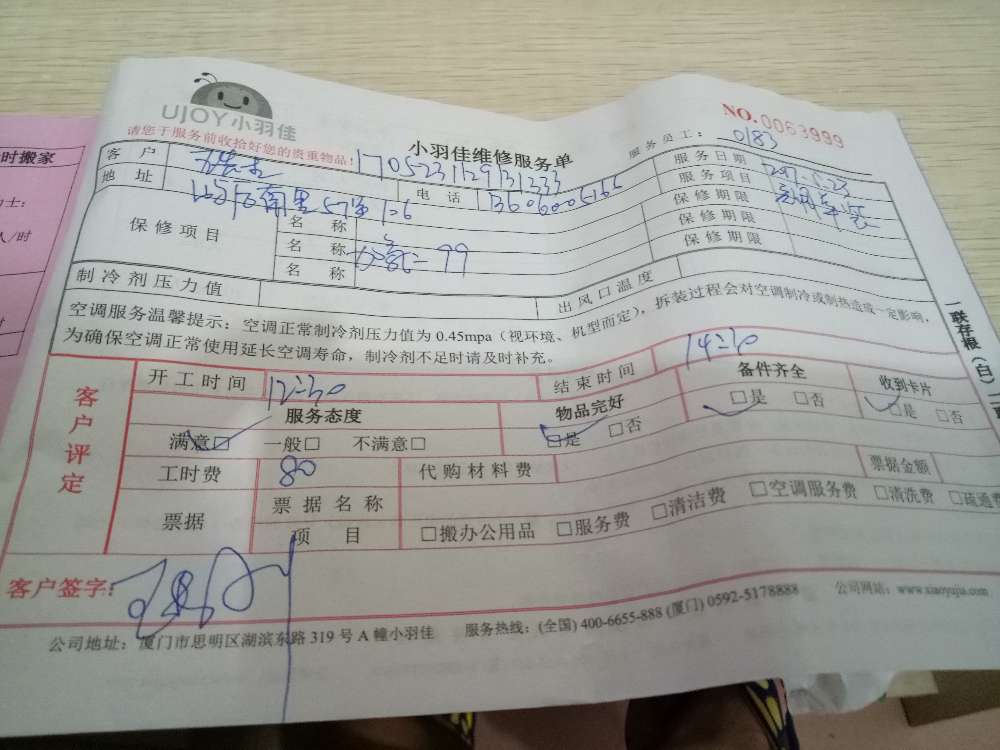 UJOY小羽佳
NO.0063999
请您于服务前收拾好您的贵重物品!
小羽佳维修服务单
服务员工: 0183
1705231129131233
客户
服务日期
地址 57 106
电话
服务项目
保修项目
名称
保修期限
名称 99
保修期限
名称
保修期限
制冷剂压力值
出风口温度
空调服务温馨提示: 空调正常制冷剂压力值为 0.45mpa (视环境、机型而定), 拆装过程会对空调制冷或制热造成一定影响,
为确保空调正常使用延长空调寿命, 制冷剂不足时请及时补充。
一联存根(白)
客户评定
开工时间 12:30
结束时间 14:30
服务态度
物品完好
备件齐全
收到卡片
满意□ 一般□ 不满意□
□是 □否
□是 □否
□是 □否
工时费 80
代购材料费
票据金额
票据
票据名称
项目
□搬办公用品 □服务费 □清洁费 □空调服务费 □清洗费 □疏通费
客户签字:
公司地址: 厦门市思明区湖滨东路 319 号 A 幢小羽佳
服务热线: (全国) 400-6655-888 (厦门) 0592-5178888
公司网站: www.xiaoyujia.com
时搬家
士:
人/时